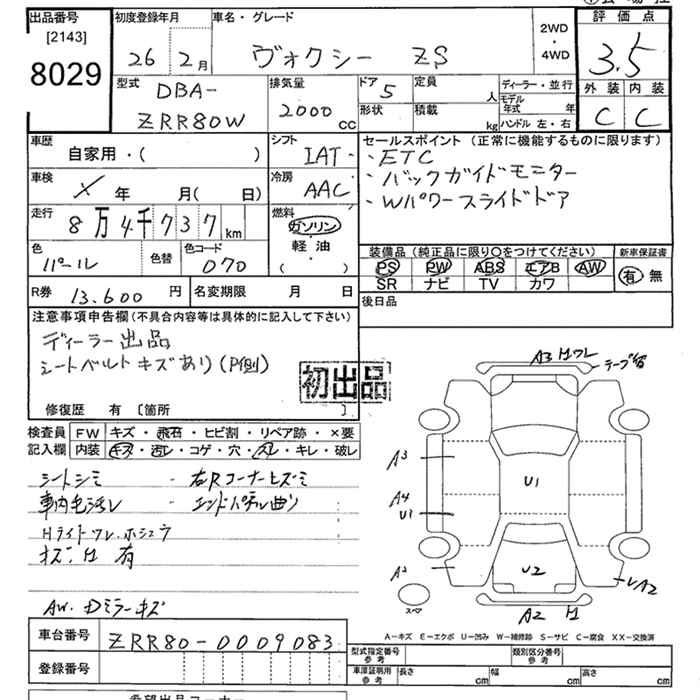 出品番号 [2143] 8029
初度登録年月 26 2月
車名・グレード ヴォクシー ZS
2WD・4WD
評価点 3.5
外装 C 内装 C
型式 DBA-ZRR80W
排気量 2000 cc
ドア 5 形状
定員 人
積載 kg
ディーラー・並行
モデル年式 年
ハンドル 左・右
車歴 自家用・( )
シフト IAT
セールスポイント (正常に機能するものに限ります)
・ETC
・バックガイドモニター
・Wパワースライドドア
車検 X 年 月( 日)
冷房 AAC
走行 8万4千737 km
燃料 ガソリン・軽油・( )
色 パール 色替
色コード 070
装備品 (純正品に限り○をつけてください)
PS PW ABS エアB AW
SR ナビ TV カワ
新車保証書 有 無
R券 13,600 円
名変期限 月 日
後日品
注意事項申告欄 (不具合内容等は具体的に記入して下さい)
ディーラー出品
シートベルトキズあり(P側)
初出品
修復歴 有 [箇所 ]
検査員記入欄
FW キズ・飛石・ヒビ割・リペア跡・×要
内装 キズ・汚レ・コゲ・穴・スレ・キレ・破レ
シートシミ ・右Rコーナーヒズミ
車内毛汚レ ・エンドパネル曲り
Hライトワレ.ホシュウ
オズ゙H 有
AW.Dミラーキズ
A3 H ワレ
テープ留
A3
A4
U1
U1
A2
U2
レA2
A2 H
スペア
A-キズ E-エクボ U-凹み W-補修跡 S-サビ C-腐食 XX-交換済
車台番号 ZRR80-0009083
登録番号
型式指定番号 参考
類別区分番号 参考
車庫証明用 参考 長さ cm 幅 cm 高さ cm
希望出品コーナー